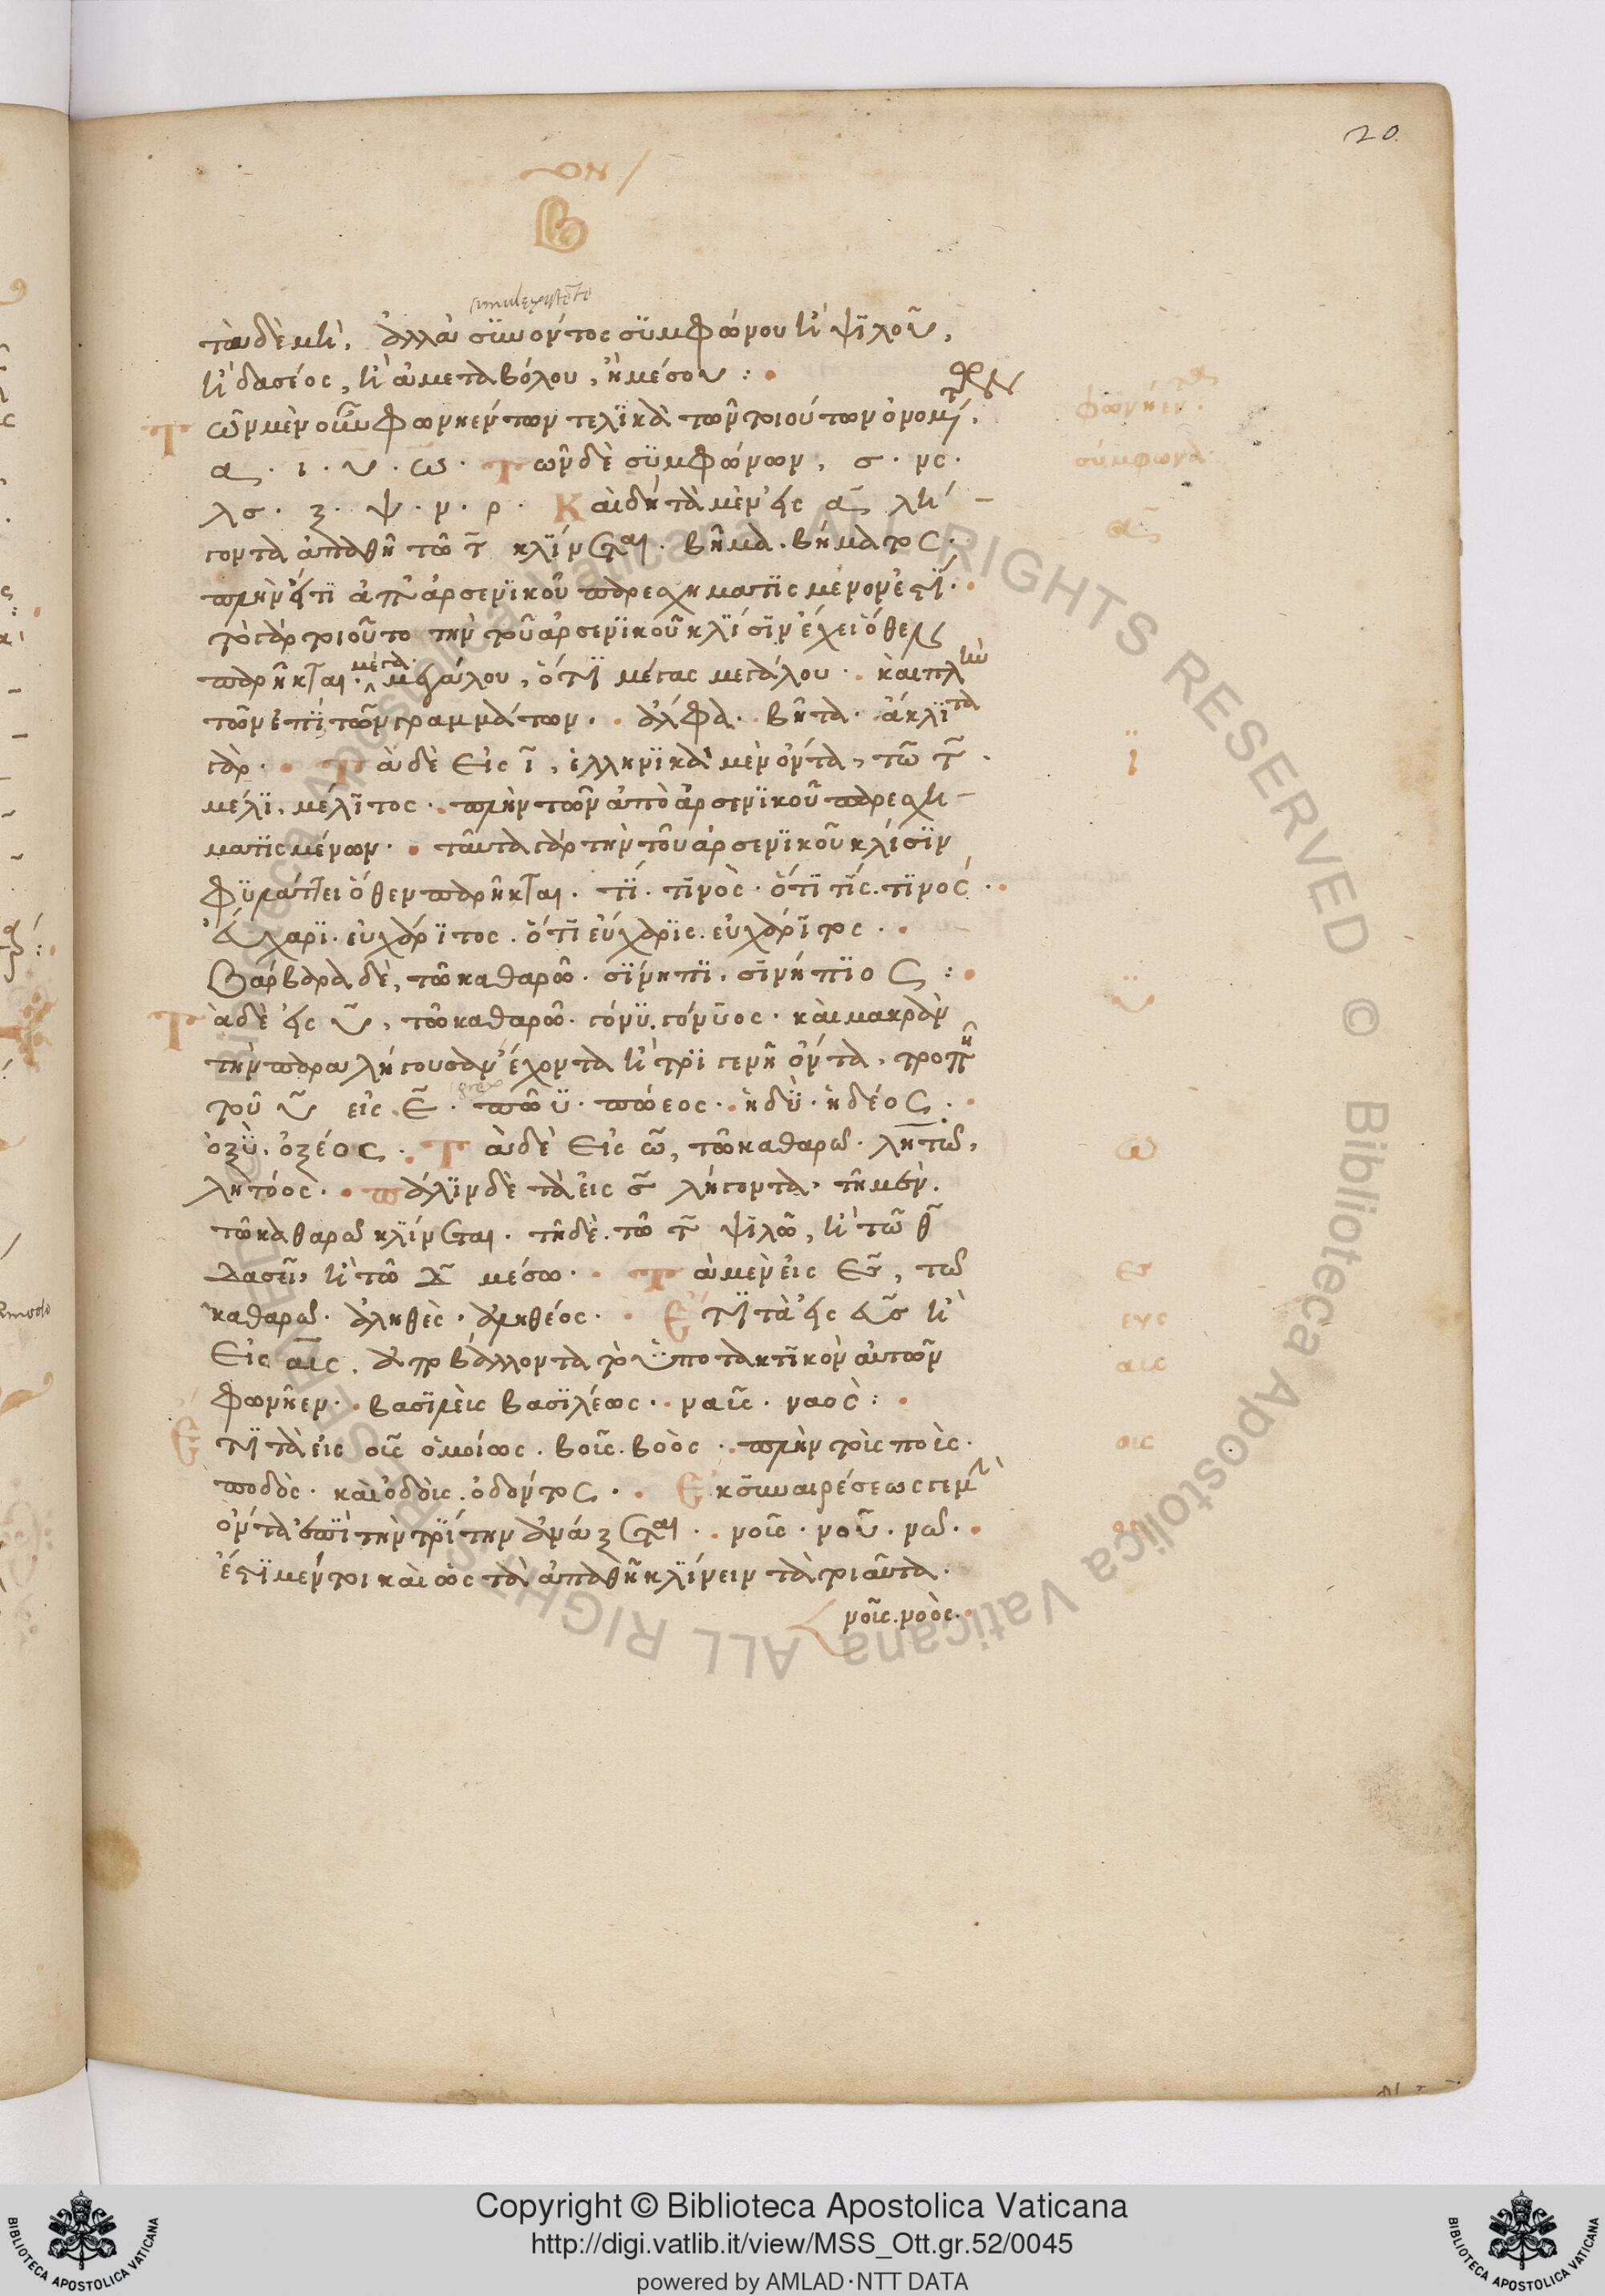 20
τὰ δὲ μὴ, ἀλλὰ συνόντος συμφώνου ἢ ψιλοῦ,
ἢ δασέος, ἢ ἀμεταβόλου, ἢ μέσου :
Τῶν μὲν οὖν φωνηέντων τελικὰ τῶν τοιούτων ὀνομάτ,
α . ι . υ . ω . Τῶν δὲ συμφώνων, σ . νς .
λσ . ξ . ψ . ν . ρ . Καὶ δὴ τὰ μὲν εἰς α λή-
γοντα ἁπαθῆ τῶ τ κλίνεται . βῆμα . βήματος .
πλὴν εἴ τι ἀπ' ἀρσενικοῦ παρεσχηματισμένον ἐστί .
τὸ γὰρ τοιοῦτο τὴν τοῦ ἀρσενικοῦ κλίσιν ἔχει ὅθεν
παρῆκται . μέγα . μεγάλου, ὅτι μέγας μεγάλου . καὶ πλὴν
τῶν ἐπὶ τῶν γραμμάτων . ἄλφα . βῆτα . ἄκλιτα
γάρ . Τὰ δὲ εἰς ι, ἑλληνικὰ μὲν ὄντα, τῶ τ .
μέλι, μέλιτος . πλὴν τῶν ἀπὸ ἀρσενικοῦ παρεσχη-
ματισμένων . ταῦτα γὰρ τὴν τοῦ ἀρσενικοῦ κλίσιν
φυλάττει ὅθεν παρῆκται . τί . τινὸς . ὅτι τίς . τινός .
εὔχαρι . εὐχάριτος . ὅτι εὔχαρις . εὐχάριτος .
Βάρβαρα δὲ, τῶ καθαρῶ . σίνηπι . σινήπιος :
Τὰ δὲ εἰς υ, τῶ καθαρῶ . γόνυ . γόνυος . καὶ μακρὰν
τὴν παραλήγουσαν ἔχοντα ἢ τριγενῆ ὄντα, τροπῆ
τοῦ υ εἰς ε . πῶυ . πώεος . ἡδὺ . ἡδέος .
ὀξὺ . ὀξέος . Τὰ δὲ εἰς ω, τῶ καθαρῶ . λητὼ,
λητόος . πάλιν δὲ τὰ εἰς σ λήγοντα, πῆ μὲν .
τῶ καθαρῶ κλίνεται . πῆ δὲ . τῶ τ ψιλῶ, ἢ τῶ θ
δασεῖ, ἢ τῶ δ μέσω . Τὰ μὲν εἰς ες, τῶ
καθαρῶ . ἀληθὲς . ἀληθέος . Ἔτι τὰ εἰς ευς ἢ
εἰς αυς . ἀποβάλλοντα τὸ ὑποτακτικὸν αὐτῶν
φωνῆεν . βασιλεὺς βασιλέως . ναῦς . ναὸς :
Ἔτι τὰ εἰς ους ὁμοίως . βοῦς . βοὸς . πλὴν τοῦ ποὺς .
ποδὸς . καὶ ὀδοὺς . ὀδόντος . Ἐκ συναιρέσεως
ὄντα ἐπὶ τὴν τρίτην ἀνάζεται . νοῦς . νοῦ . νῶ .
ἔστι μέντοι καὶ ὡς τὰ ἀπαθῆ κλίνειν τὰ τοιαῦτα .
νοῦς . νοός .
φωνήεντα
σύμφωνα
α
ϊ
ϋ
ω
ες
ευς
αυς
ους
Copyright © Biblioteca Apostolica Vaticana
http://digi.vatlib.it/view/MSS_Ott.gr.52/0045
powered by AMLAD·NTT DATA
BIBLIOTECA APOSTOLICA VATICANA
BIBLIOTECA APOSTOLICA VATICANA